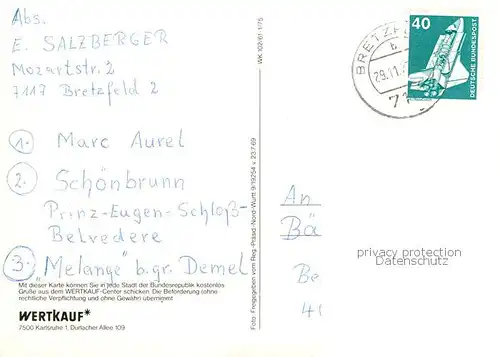 Abs.
E. SALZBERGER
Mozartstr. 2
7117 Bretzfeld 2
1. Marc Aurel
2. Schönbrunn
Prinz-Eugen-Schloß-
Belvedere
3. "Melange" b. gr. Demel
Mit dieser Karte können Sie in jede Stadt der Bundesrepublik kostenlos
Grüße aus dem WERTKAUF-Center schicken. Die Beförderung (ohne
rechtliche Verpflichtung und ohne Gewähr) übernimmt
WERTKAUF*
7500 Karlsruhe 1, Durlacher Allee 109
WK 102/61 1/75
Foto: Freigegeben vom Reg.-Präsid.-Nord-Württ 9/19254 v. 23.7.69
BRETZF
b
29.11.
71
40
DEUTSCHE BUNDESPOST
An
Bä
Be
privacy protection
Datenschutz